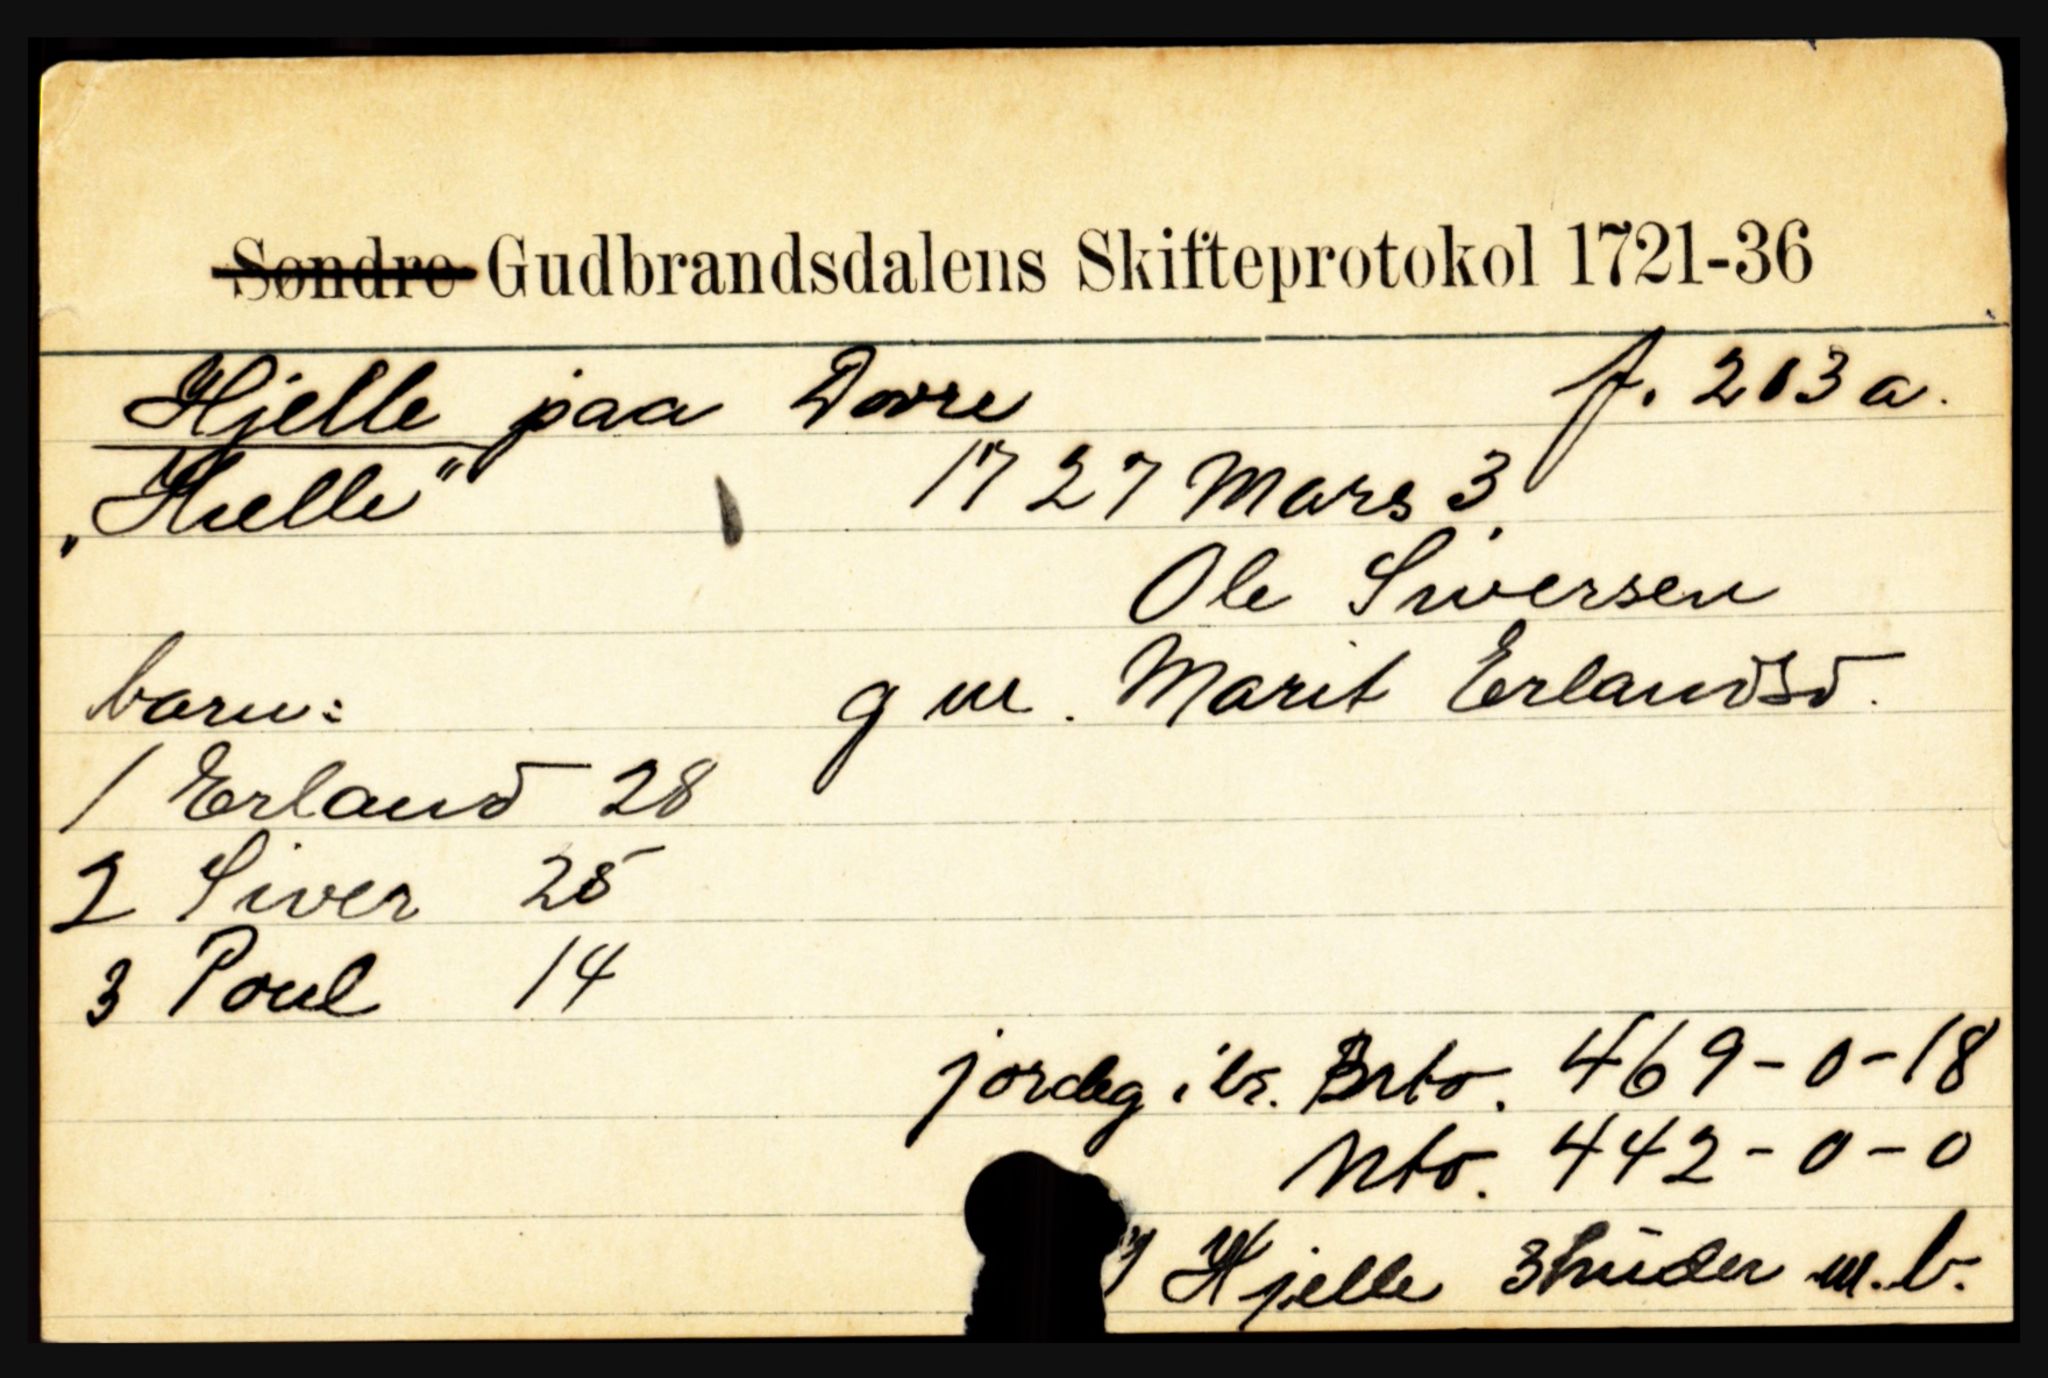 Søndre Gudbrandsdalens Skifteprotokol 1721-36
Hjelle paa Dovre f. 213a.
"Hielle" 1727 Mars 3
Ole Siversen
barn: g m. Marit Erlandsd.
1 Erland 28
2 Siver 25
3 Poul 14
jordeg i b. Brto. 469-0-18
Nto. 442-0-0
Hjelle 3 huder m. b.